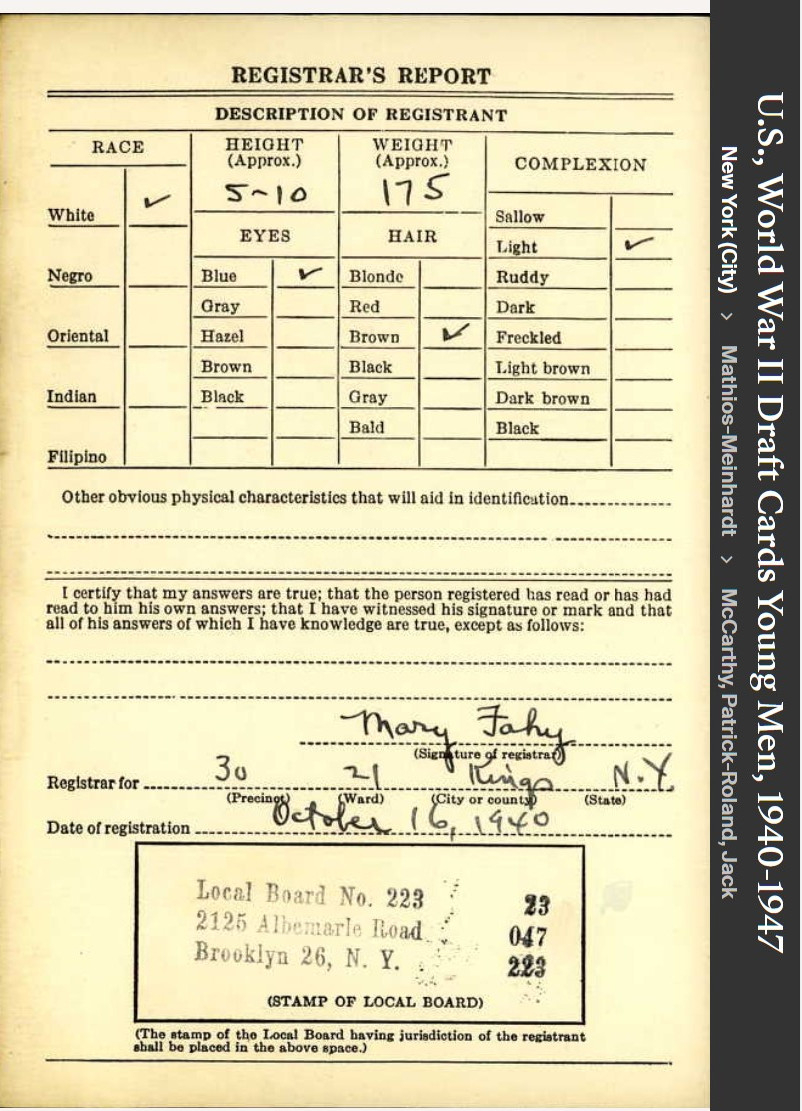 REGISTRAR'S REPORT
DESCRIPTION OF REGISTRANT
RACE
HEIGHT
(Approx.)
WEIGHT
(Approx.)
COMPLEXION
5-10
175
White ✓
Sallow
EYES
HAIR
Light ✓
Negro
Blue ✓
Blonde
Ruddy
Gray
Red
Dark
Oriental
Hazel
Brown ✓
Freckled
Brown
Black
Light brown
Indian
Black
Gray
Dark brown
Bald
Black
Filipino
Other obvious physical characteristics that will aid in identification
I certify that my answers are true; that the person registered has read or has had
read to him his own answers; that I have witnessed his signature or mark and that
all of his answers of which I have knowledge are true, except as follows:
Mary Fahy
(Signature of registrar)
Registrar for 30 21 Kings N.Y.
(Precinct) (Ward) (City or county) (State)
Date of registration October 16, 1940
Local Board No. 223 23
2125 Albemarle Road 047
Brooklyn 26, N. Y. 223
(STAMP OF LOCAL BOARD)
(The stamp of the Local Board having jurisdiction of the registrant
shall be placed in the above space.)
U.S., World War II Draft Cards Young Men, 1940-1947
New York (City) > Mathios-Meinhardt > McCarthy, Patrick-Roland, Jack